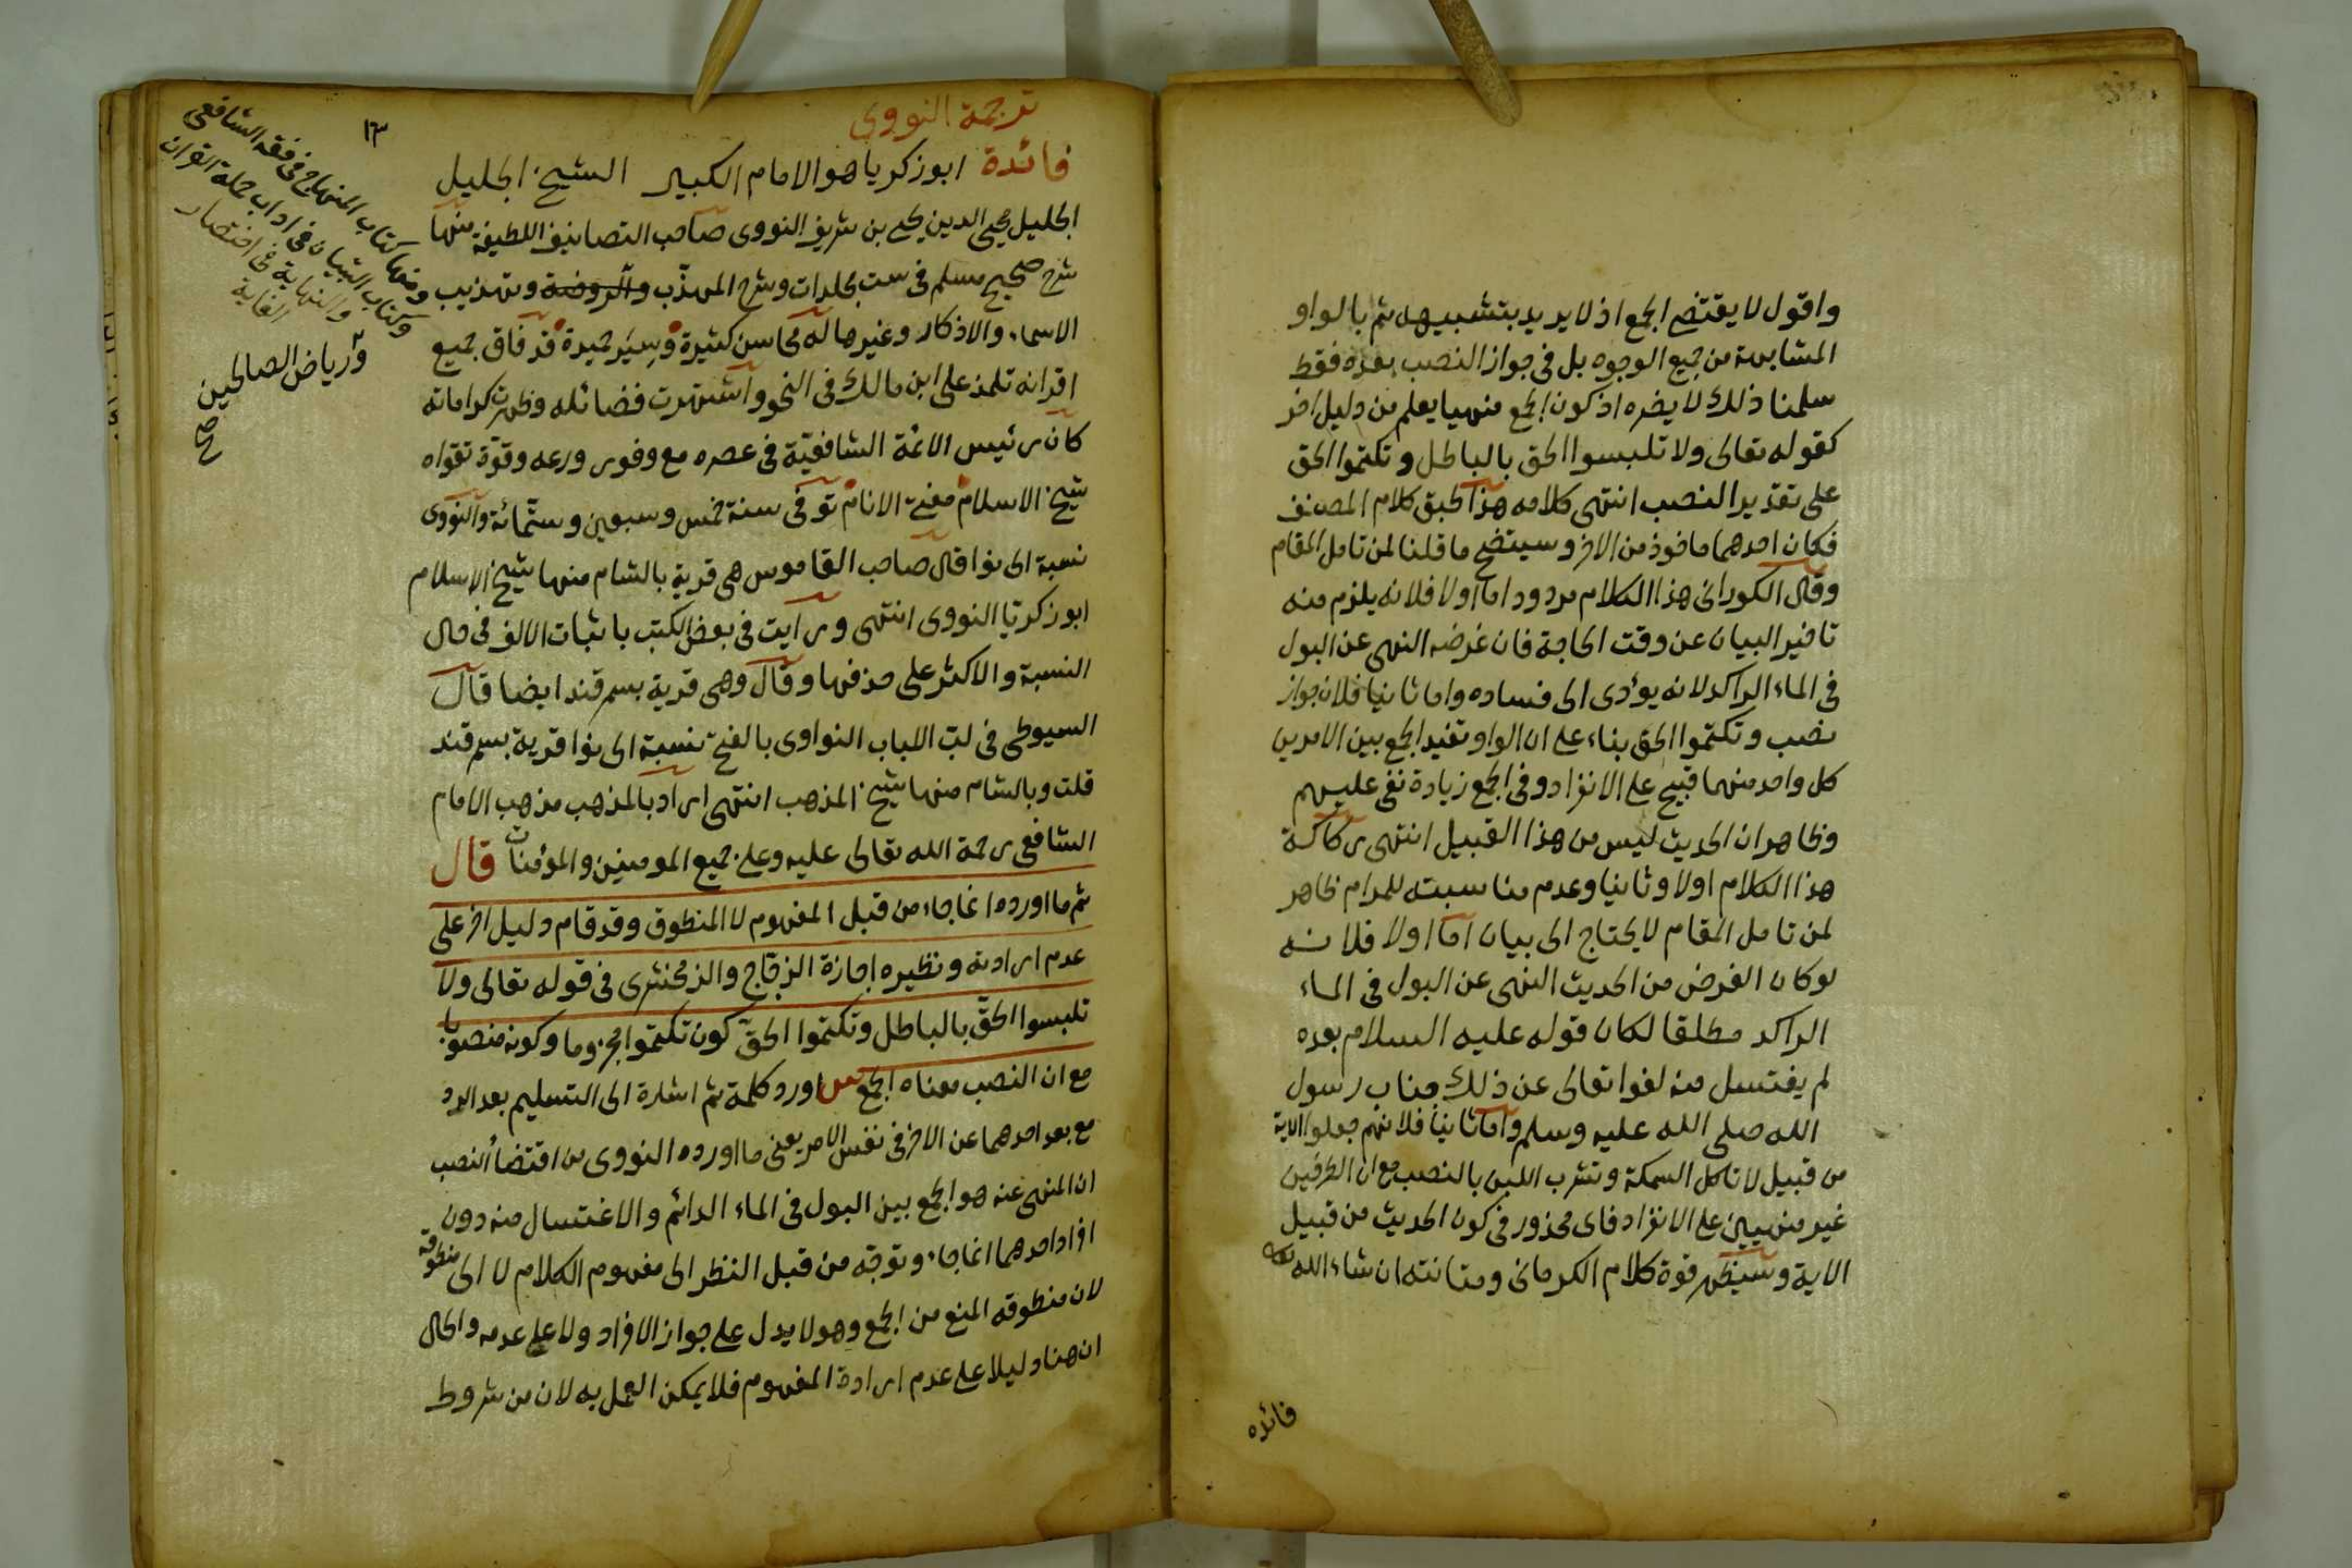 واقول لا يقتضي الجمع اذ لا يريد بتشبيهه ثم بالواو
المشابهة من جميع الوجوه بل في جواز النصب بعده فقط
سلمنا ذلك لا يضره اذ كون الجمع منهيا يعلم من دليل اخر
كقوله تعالى ولا تلبسوا الحق بالباطل وتكتموا الحق
على تقدير النصب انتهى كلامه هذا طبق كلام المصنف
فكان احدهما ماخوذ من الاخر وسيتضح ما قلنا لمن تامل المقام
وقال الكوراني هذا الكلام مردود اما اولا فلانه يلزم منه
تاخير البيان عن وقت الحاجة فان غرضه النهى عن البول
في الماء الراكد لانه يؤدى الى فساده واما ثانيا فلان جواز
نصب وتكتموا الحق بناء على ان الواو تفيد الجمع بين الامرين
كل واحد منهما قبيح على الانفراد وفي الجمع زيادة نفى عليهم
وظاهر ان الحديث ليس من هذا القبيل انتهى ركاكة
هذا الكلام اولا وثانيا وعدم مناسبته للمرام ظاهر
لمن تامل المقام لا يحتاج الى بيان اما اولا فلانه
لو كان الغرض من الحديث النهى عن البول في الماء
الراكد مطلقا لكان قوله عليه السلام بعده
لم يغتسل منه لغوا تعالى عن ذلك جناب رسول
الله صلى الله عليه وسلم واما ثانيا فلانهم جعلوا الاية
من قبيل لا تاكل السمكة وتشرب اللبن بالنصب مع ان الطرفين
غير منهيين على الانفراد فاى محذور في كون الحديث من قبيل
الاية وسيظهر قوة كلام الكرماني ومتانته ان شاء الله تعالى
فائده
١٣
ترجمة النووي
فائدة ابو زكريا هو الامام الكبير الشيخ الجليل
الجليل محيى الدين يحيى بن شريف النووى صاحب التصانيف اللطيفة منها
شرح صحيح مسلم في ست مجلدات وشرح المهذّب والروضة وتهذيب
الاسماء والاذكار وغيرها له محاسن كثيرة وسِيَر حميدة قد فاق جميع
اقرانه تلمذ على ابن مالك في النحو واشتهرت فضائله وظهرت كراماته
كان رئيس الائمة الشافعيّة في عصره مع وفور ورعه وقوّة تقواه
شيخ الاسلام مفتى الانام توفى سنة خمس وسبعين وستّمائة والنووى
نسبة الى نوا قال صاحب القاموس هى قرية بالشام منها شيخ الاسلام
ابو زكريّا النووى انتهى ورايت في بعض الكتب باثبات الالف في حال
النسبة والاكثر على حذفها وقال وهى قرية بسمرقند ايضا قال
السيوطى في لبّ اللباب النواوى بالفتح نسبة الى نوا قرية بسمرقند
قلت وبالشام منها شيخ المذهب انتهى اراد بالمذهب مذهب الامام
الشافعى رحمة الله تعالى عليه وعلى جميع المومنين والمؤمنات قال
ثم ما اورده انما جاء من قبل المفهوم لا المنطوق وقد قام دليل اخر على
عدم ارادته ونظيره اجازة الزجّاج والزمخشرى في قوله تعالى ولا
تلبسوا الحقّ بالباطل وتكتموا الحقّ كون تكتموا مجزوما وكونه منصوبا
مع ان النصب معناه الجمع س اورد كلمة ثم اشارة الى التسليم بعد الرد
مع بعد احدهما عن الاخر في نفس الامر يعنى ما اورده النووى من اقتضأ النصب
ان المنهى عنه هو الجمع بين البول في الماء الدائم والاغتسال منه دون
افراد احدهما انما جاء وتوجّه من قبل النظر الى مفهوم الكلام لا الى منطوقه
لان منطوقه المنع من الجمع وهو لا يدل على جواز الافراد ولا على عدمه والحال
ان هنا دليلا على عدم ارادة المفهوم فلا يمكن العمل به لان من شروط
ومنها كتاب المنهاج في فقه الشافعى
وكتاب التبيان في اداب حملة القران
والنهاية في اختصار
الغاية
ورياض الصالحين
صح